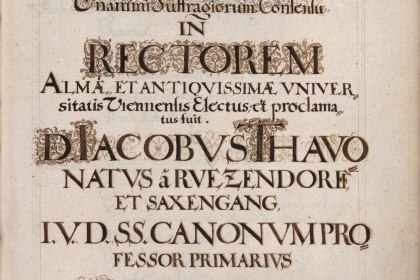 Unanimi Suffragiorum Consensu
IN
RECTOREM
ALMÆ, ET ANTIQUISSIMÆ UNIVER
sitatis Viennensis Electus, et proclama⸗
tus fuit.
D. IACOBUS THAVO
NATUS â RVEZENDORF
ET SAXENGANG,
I. V. D. SS. CANONUM PRO⸗
FESSOR PRIMARIUS